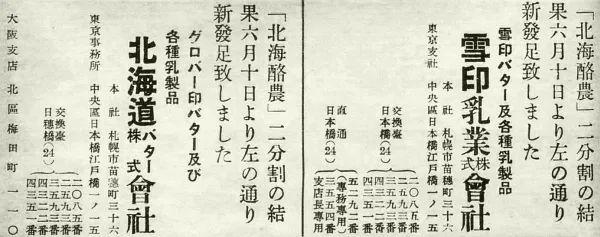 「北海酪農」二分割の結
果六月十日より左の通り
新發足致しました
雪印バター及各種乳製品
雪印乳業株式會社
本社 札幌市苗穂町三十六
東京支社 中央區日本橋江戸橋一ノ一五
交換臺
日本橋(24)
二〇八五番
三五九三番
四三二二番
四三五一番
直通
日本橋(24)
五二九二番
(専務専用)
三五五四番
支店長専用
「北海酪農」二分割の結
果六月十日より左の通り
新發足致しました
グロバー印バター及び
各種乳製品
北海道バター株式會社
本社 札幌市苗穂町三十六
東京事務所 中央區日本橋江戸橋一ノ一五
交換臺
日穂橋(24)
二〇八五番
二五九三番
三五九三番
四三二二番
四三五一番
大阪支店 北區梅田町一一〇